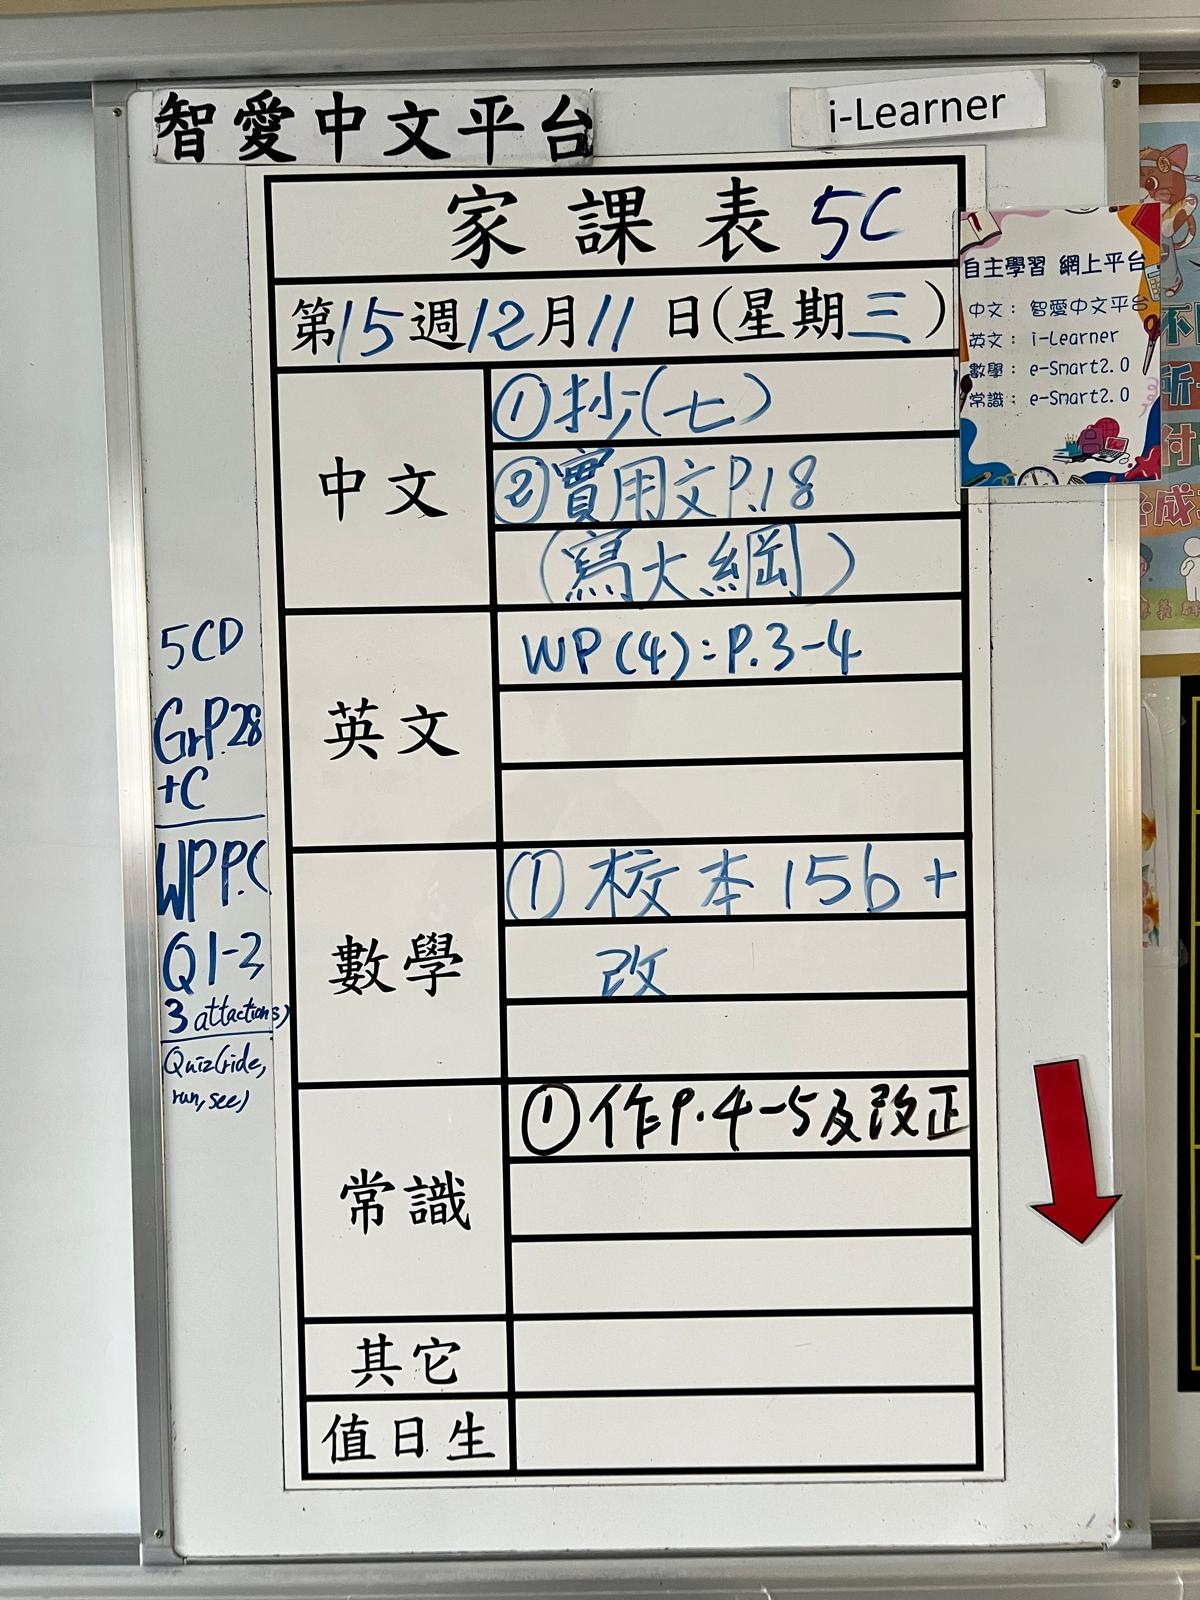 智愛中文平台
i-Learner
家課表 5C
第15週12月11日(星期三)
中文
①抄(七)
②實用文P.18
(寫大綱)
英文
WP(4):P.3-4
數學
①校本15b+
改
常識
①作P.4-5及改正
其它
值日生
5CD
GrP.28
+C
WPP.(
Q1-3
3 attactions)
Quiz(ride,
run, see)
自主學習 網上平台
中文：智愛中文平台
英文：i-Learner
數學：e-Smart2.0
常識：e-Smart2.0
所
付
成